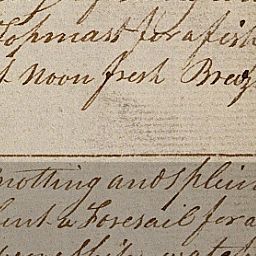 Topmast for a fish
Noon fresh Breez
notting and splicin
bent a Foresail for a